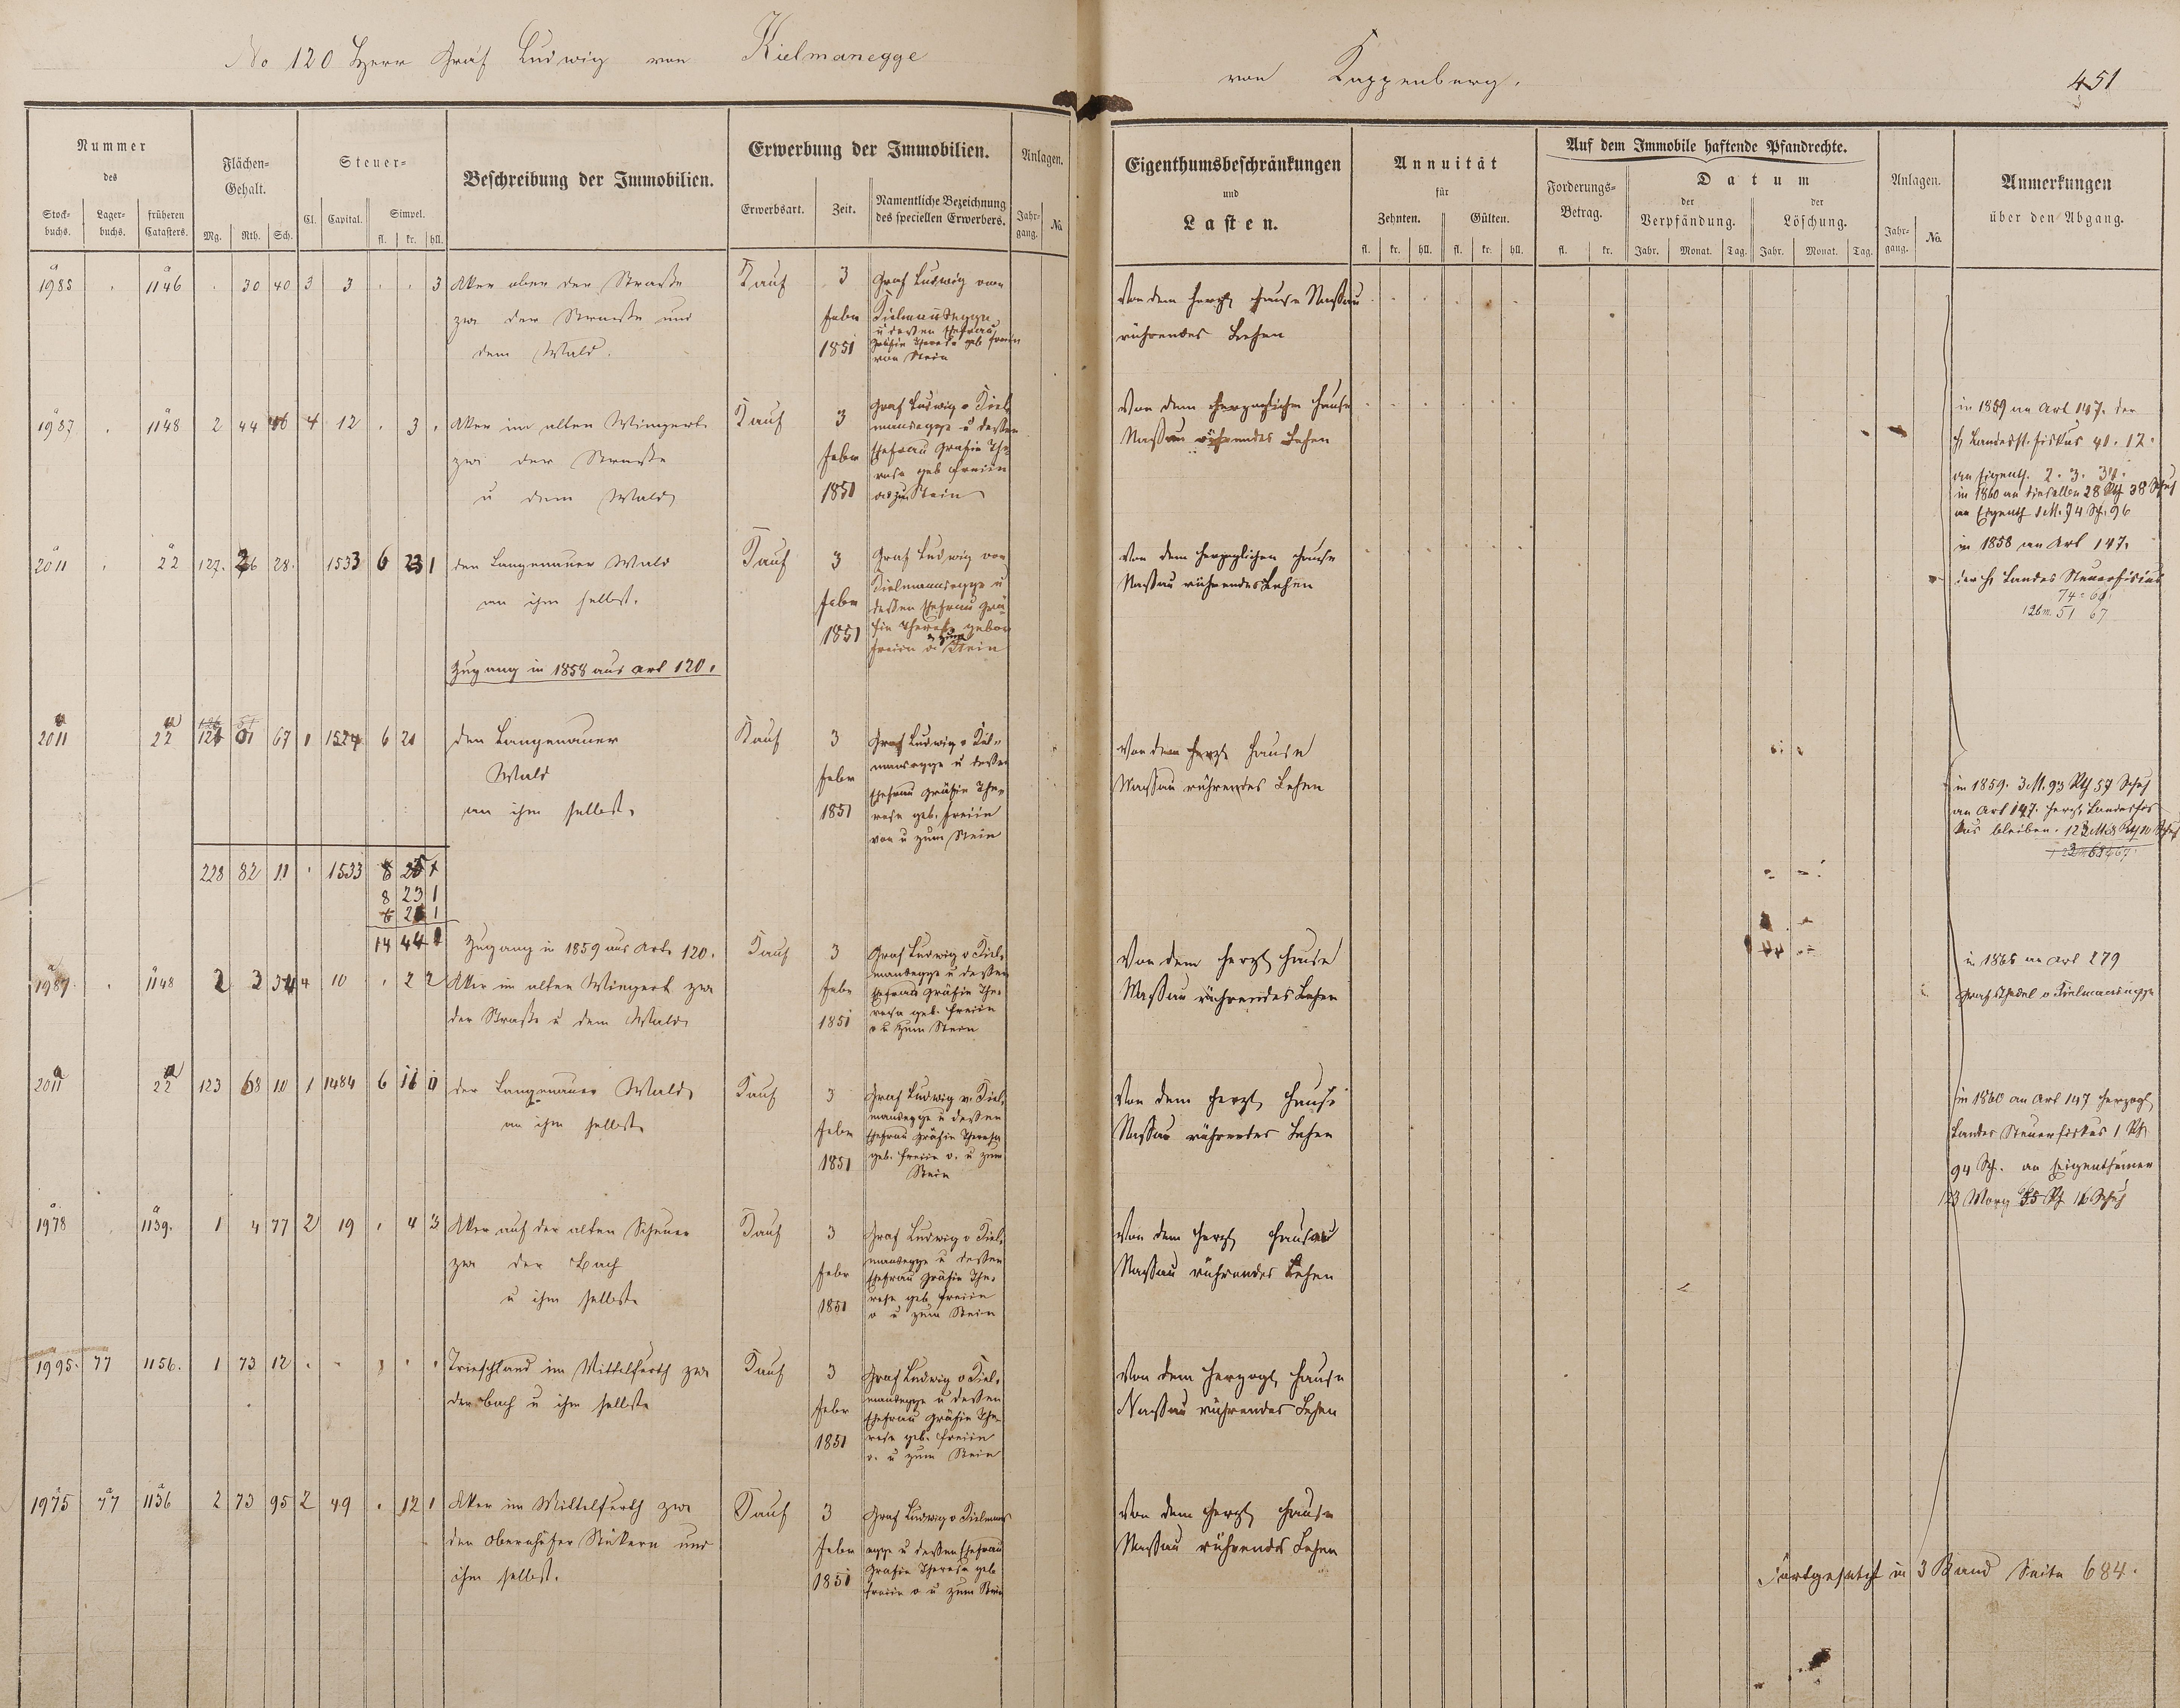 No 120 Herr Graf Ludwig von Kielmanegge
von Kappenberg.
451
Nummer
des
Stock-
buchs.
Lager-
buchs.
früheren
Catasters.
Flächen-
Gehalt.
Mg. Rth. Sch.
Steuer-
Cl. Capital. Simpel.
fl. kr. hll.
Beschreibung der Immobilien.
Erwerbung der Immobilien.
Erwerbsart. Zeit.
Namentliche Bezeichnung
des speciellen Erwerbers.
Anlagen.
Jahr-
gang. No
Eigenthumsbeschränkungen
und
Lasten.
Annuität
für
Zehnten. Gülten.
fl. kr. hll. fl. kr. hll.
Auf dem Immobile haftende Pfandrechte.
Forderungs-
Betrag.
fl. kr.
Datum
der
Verpfändung.
der
Löschung.
Jahr. Monat. Tag. Jahr. Monat. Tag.
Anlagen.
Jahr-
gang. No.
Anmerkungen
über den Abgang.
1985 a 1146 a 30 40 3 3 3 Aker ober der Straße Kauf 3 Graf Ludwig von
zw der Straße und Febr
dem Wald. 1851
u dessen Ehefrau
Gräfin Therese geb Freiin
von Stein
Von dem Herzl Hause Nassau
rührendes Lehen
1987 a 1148 a 2 44 46 4 12 3 Aker im alten Wingert Kauf 3 Graf Ludwig v Kiel
zw der Straße Febr mansegge u dessen
u dem Wald 1851 Ehefrau Gräfin The
rese geb Freiin
v u zu Stein
Von dem Herzoglichen Hause
Nassau rührendes Lehen
in 1859 an Art 147. der
H Landesst. Fiskus 40. 12.
an Eigenth. 2. 3. 34.
in 1860 an denselben 28 Rth 38 Schuh
2011 a 22 a 127. 28. 1533 6 23 1 der Langenauer Wald Kauf 3 Graf Ludwig von
an ihm selbst. Febr Kielmannsegge u
1851 dessen Ehefrau Grä
fin Therese gebor
Freiin v. u zum Stein
Von dem Herzoglichen Hause
Nassau rührendes Lehen
in 1858 an Art 147.
der H Landes Steuerfiskus
126 m 51 67
Zugang in 1858 aus Art 120.
2011 a 22 a 126 51 67 1 1524 6 21 der Langenauer Kauf 3 Graf Ludwig v Kiel-
Wald Febr mansegge u dessen
an ihm selbst. 1851 Ehefrau Gräfin The-
rese geb. Freiin
von u zum Stein
Von dem Herzl Hause
Nassau rührendes Lehen
in 1859. 3 M. 93 Rth 57 Schuh
an Art 147. Herzl. Landesfis
kus bleiben.
228 82 11 1533
8 23 1
6 21 1
14 44
Zugang in 1859 aus Art. 120.
1987 a 1148 a 2 3 34 4 10 2 2 Aker im alten Wingert zw Kauf 3 Graf Ludwig v Kiel-
der Straße u dem Wald Febr mansegge u dessen
1851 Ehefrau Gräfin The-
rese geb. Freiin
v u zum Stein
Von dem Herzl Hause
Nassau rührendes Lehen
in 1865 an Art 279
2011 a 22 a 123 68 10 1 1484 6 11 0 der Langenauer Wald Kauf 3 Graf Ludwig v. Kiel-
an ihm selbst. Febr mansegge u dessen
1851 Ehefrau Gräfin Therese
geb. Freiin v. u zum
Stein
Von dem Herzl Hause
Nassau rührendes Lehen
in 1860 an Art 147 Herzogl
Landes Steuerfiskus 1 Rth
94 Sch. an Eigenthümer
123 Morg Rth 16 Schuh
1978 a 1139. a 1 4 77 2 19 4 3 Aker auf der alten Scheuer Kauf 3 Graf Ludwig v Kiel-
zw der Bach Febr mansegge u dessen
u ihm selbst. 1851 Ehefrau Gräfin The-
rese geb. Freiin
v u zum Stein
Von dem Herzl Hause
Nassau rührendes Lehen
1995. 77 1156. 1 73 12 Trieschland im Mittelfurth zw Kauf 3 Graf Ludwig v Kiel-
der Bach u ihm selbst. Febr mansegge u dessen
1851 Ehefrau Gräfin The-
rese geb. Freiin
v. u zum Stein
Von dem Herzogl Hause
Nassau rührendes Lehen
1975 a 77 a 1136 a 2 73 95 2 49 12 1 Aker im Mittelfurth zw Kauf 3 Graf Ludwig v Kielmans
den Obernhöfer Stükern und Febr egge u dessen Ehefrau
ihm selbst. 1851 Gräfin Therese geb
Freiin v u zum Stein
Von dem Herzl Hause
Nassau rührendes Lehen
Fortgesetzt in 3 Band Seite 684.